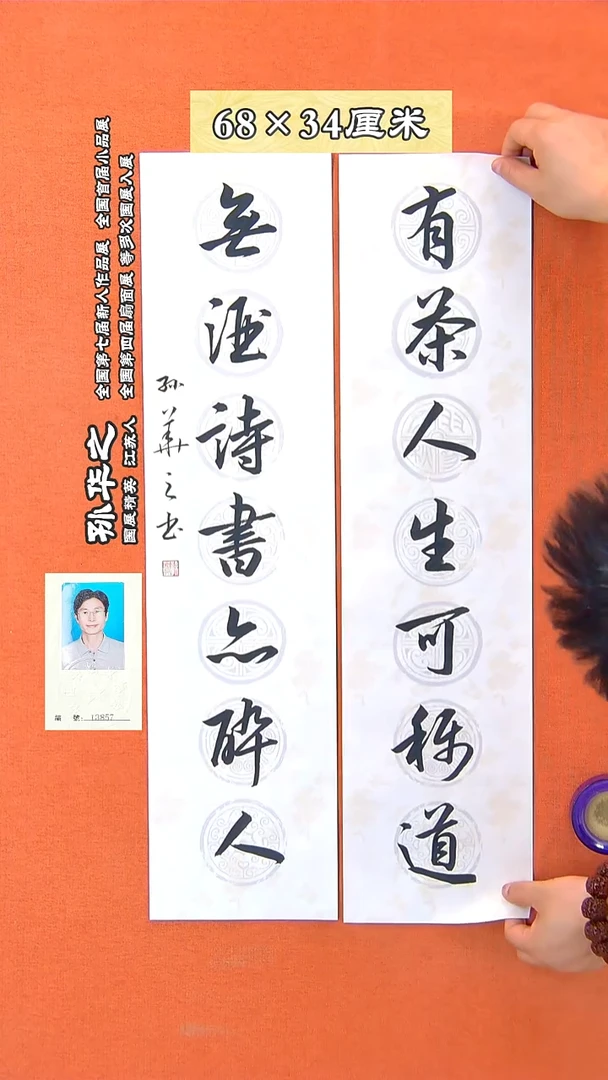 68×34厘米
有茶人生可称道
無酒詩書亦醉人
孙華之书
孙华之
国展精英 江苏人
全国第七届新人作品展 全国首届小品展
全国第四届扇面展 等多次国展入展
編 號: 13857